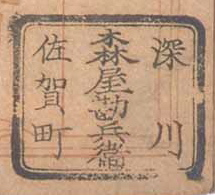 深川
森屋勘兵衛
佐賀町